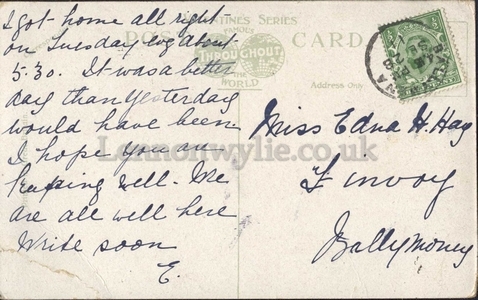 I got home all right
on Tuesday evg about
5.30. It was a better
day than yesterday
would have been
I hope you are
keeping well. We
are all well here
Write soon
E.
VALENTINES SERIES
FAMOUS
THROUGHOUT
THE
WORLD
POST CARD
Address Only
Miss Edna H. Hay
Finvoy
Ballymoney
Lennonwylie.co.uk